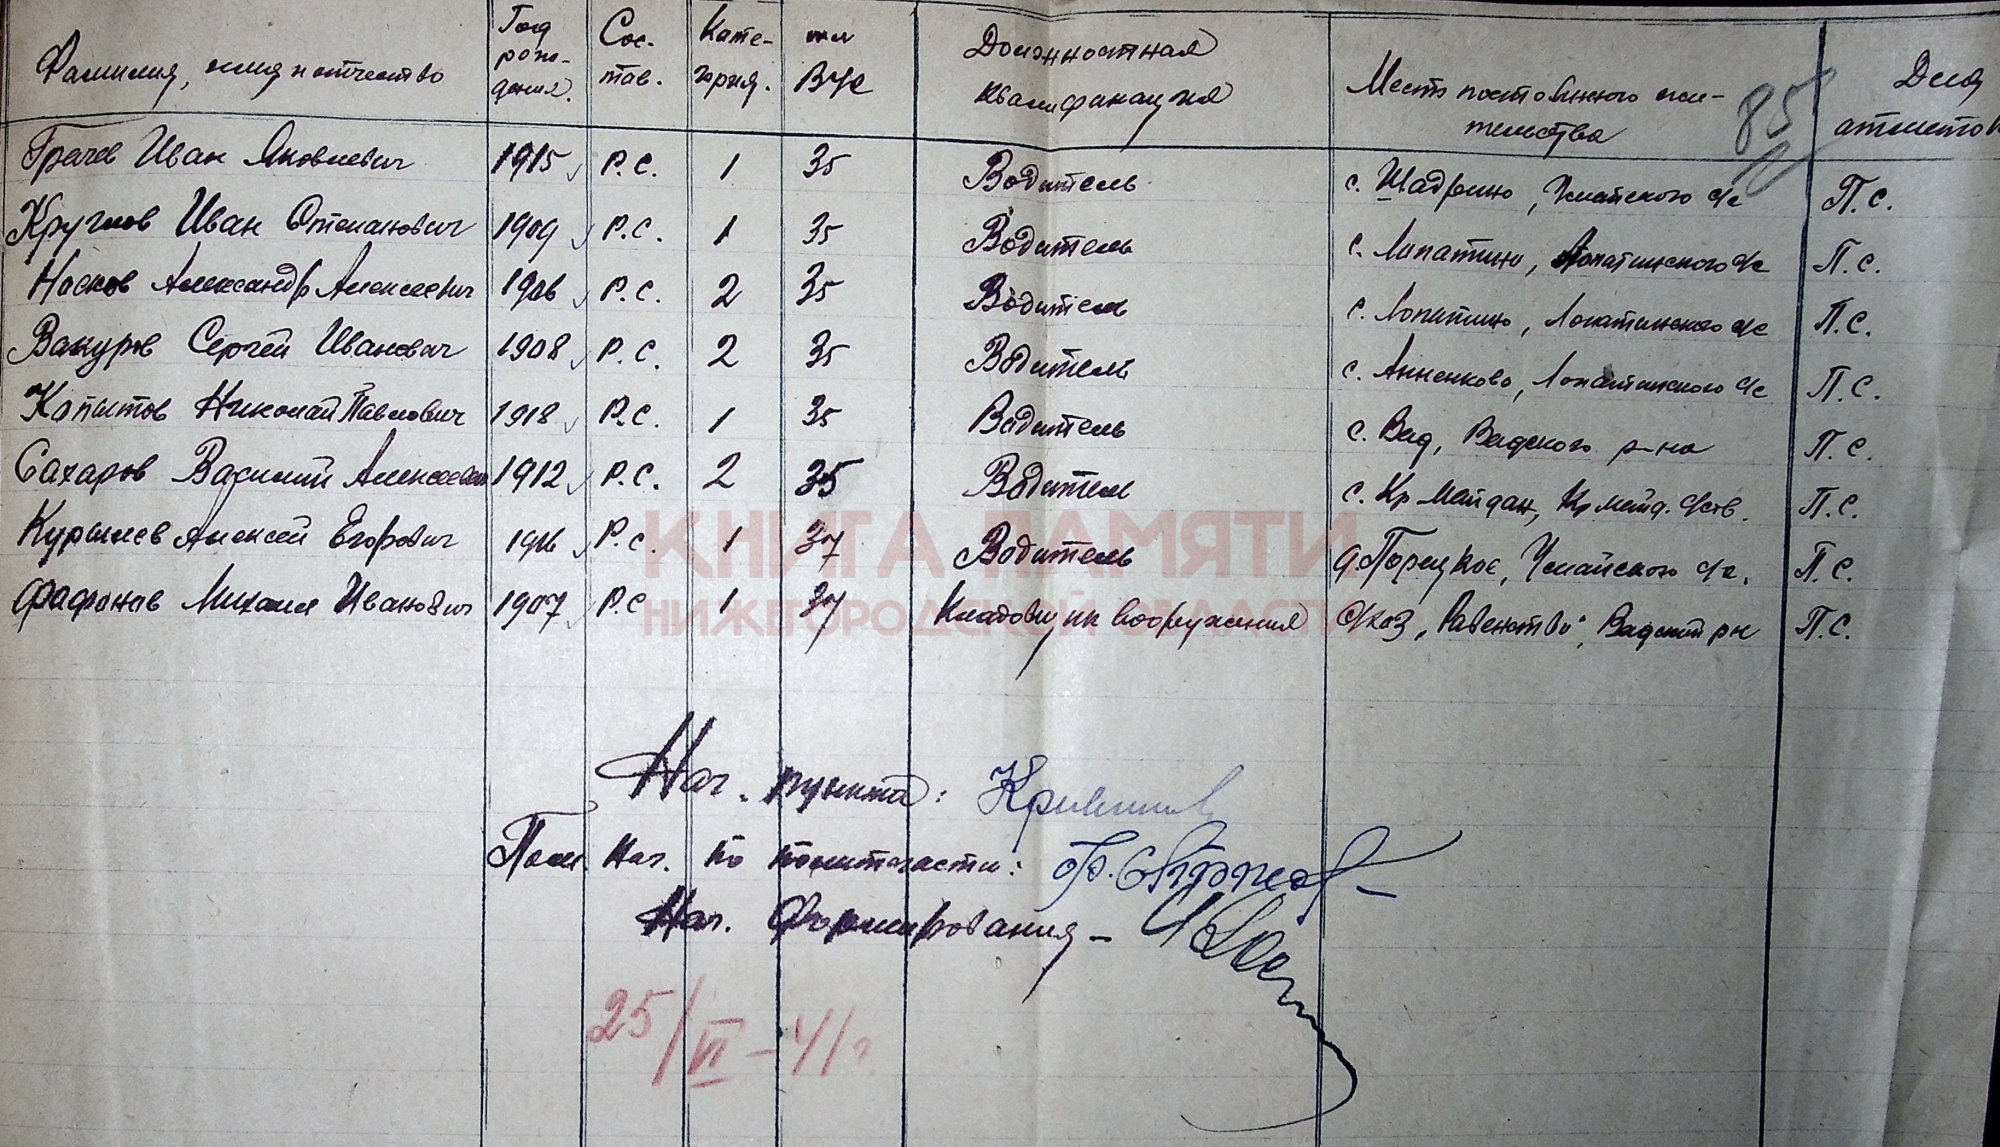 Фамилия, имя и отчество Год рождения. Состав. Категория. №№ ВУС Должностная квалификация Место постоянного жительства
85
Грачев Иван Яковлевич 1915 Р.С. 1 35 Водитель с. Шадрино, Умайского с/с П.С.
Круглов Иван Степанович 1909 Р.С. 1 35 Водитель с. Лопатино, Лопатинского с/с П.С.
Носков Александр Алексеевич 1906 Р.С. 2 35 Водитель с. Лопатино, Лопатинского с/с П.С.
Вакуров Сергей Иванович 1908 Р.С. 2 35 Водитель с. Анненково, Лопатинского с/с П.С.
Копытов Николай Павлович 1918 Р.С. 1 35 Водитель с. Вад, Вадского р-на П.С.
Сахаров Василий Алексеевич 1912 Р.С. 2 35 Водитель с. Кр Майдан, Кр майд. с/сов. П.С.
Курылев Алексей Егорович Р.С. 1 37 Водитель д. Порецкое, Умайского с/с. П.С.
Фафонов Михаил Иванович 1907 Р.С 1 37 Кладовщик вооружения С/хоз "Равенство", Вадский рн П.С.
КНИГА ПАМЯТИ
НИЖЕГОРОДСКОЙ ОБЛАСТИ
Нач. пункта:
Пом. Нач. по политчасти:
Нач. Формирования –
25/VI – 41 г